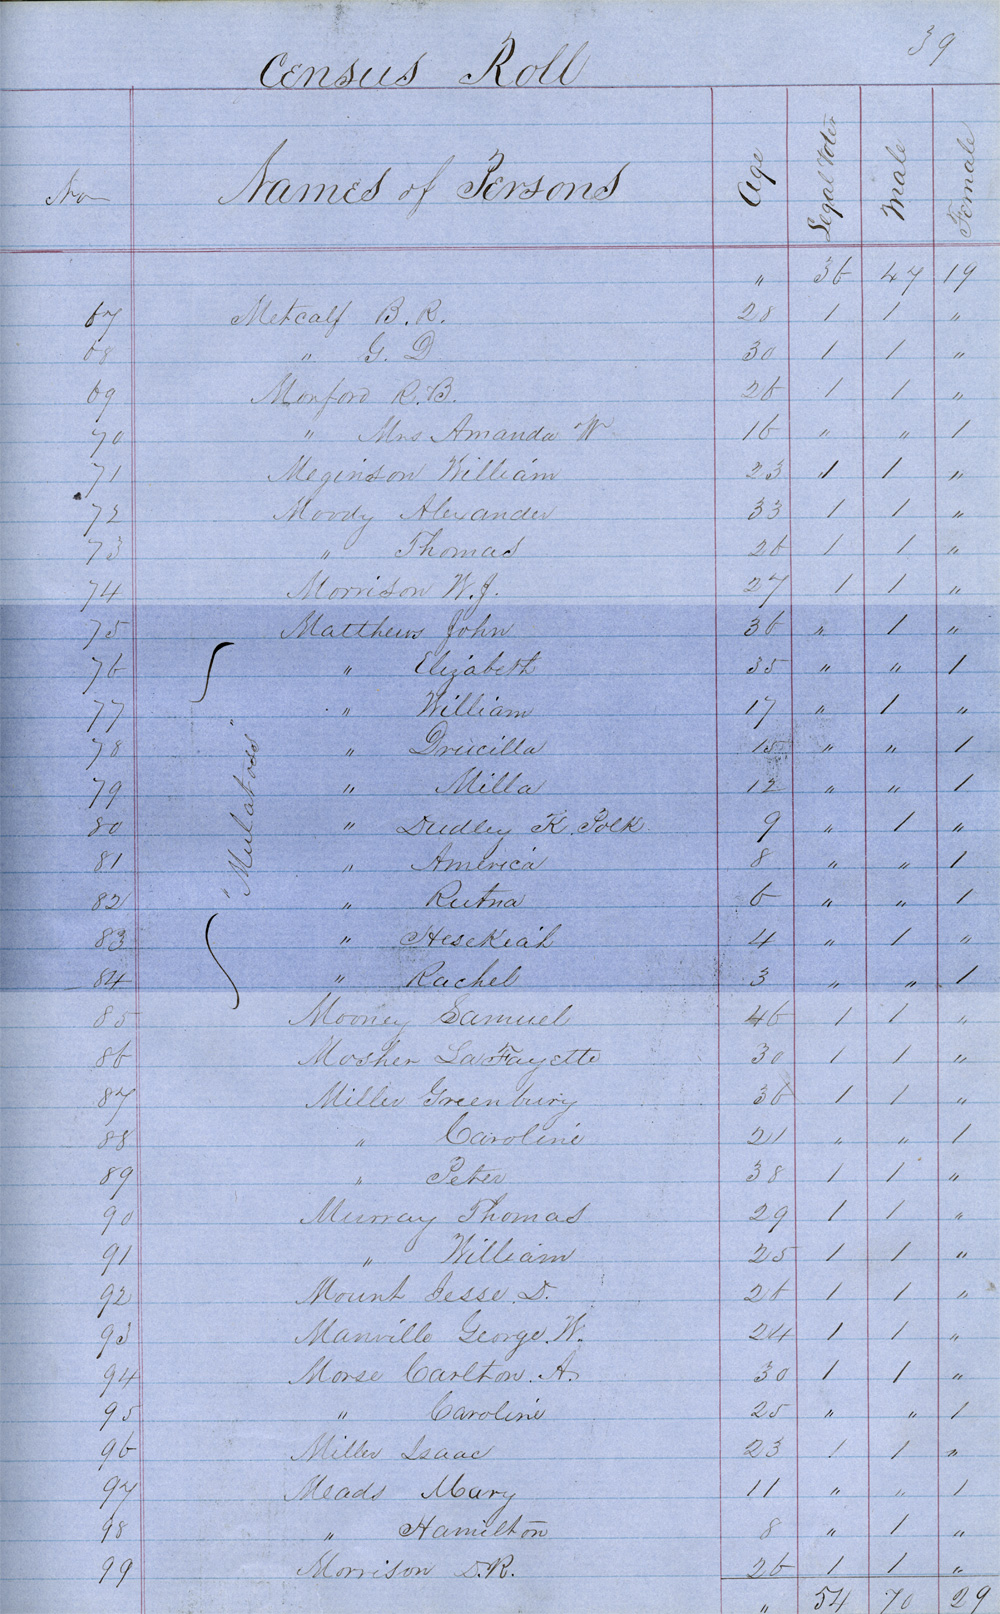 39
Census Roll
No Names of Persons Age Legal Voter Male Female
" 36 47 19
67 Metcalf B. R. 28 1 1 "
68 " G. D 30 1 1 "
69 Monford R. B. 26 1 1 "
70 " Mrs Amanda W 16 " " 1
71 Meginson William 23 1 1 "
72 Moody Alexander 33 1 1 "
73 " Thomas 26 1 1 "
74 Morrison W. J. 27 1 1 "
75 Matthews John 36 " 1 "
76 " Elizabeth 35 " " 1
77 " William 17 " 1 "
78 " Drucilla 15 " " 1
79 " Milla 12 " " 1
80 " Dudley K. Polk 9 " 1 "
81 " America 8 " " 1
82 " Rutna 6 " " 1
83 " Hesekiah 4 " 1 "
84 " Rachel 3 " " 1
"Mulatoes"
85 Mooney Samuel 46 1 1 "
86 Mosher LaFayette 30 1 1 "
87 Miller Greenbury 36 1 1 "
88 " Caroline 21 " " 1
89 " Peter 38 1 1 "
90 Murray Thomas 29 1 1 "
91 " William 25 1 1 "
92 Mount Jesse D. 26 1 1 "
93 Manville George W. 24 1 1 "
94 Morse Carlton A. 30 1 1 "
95 " Caroline 25 " " 1
96 Miller Isaac 23 1 1 "
97 Meads Mary 11 " " 1
98 " Hamilton 8 " 1 "
99 Morrison D. R. 26 1 1 "
" 54 70 29